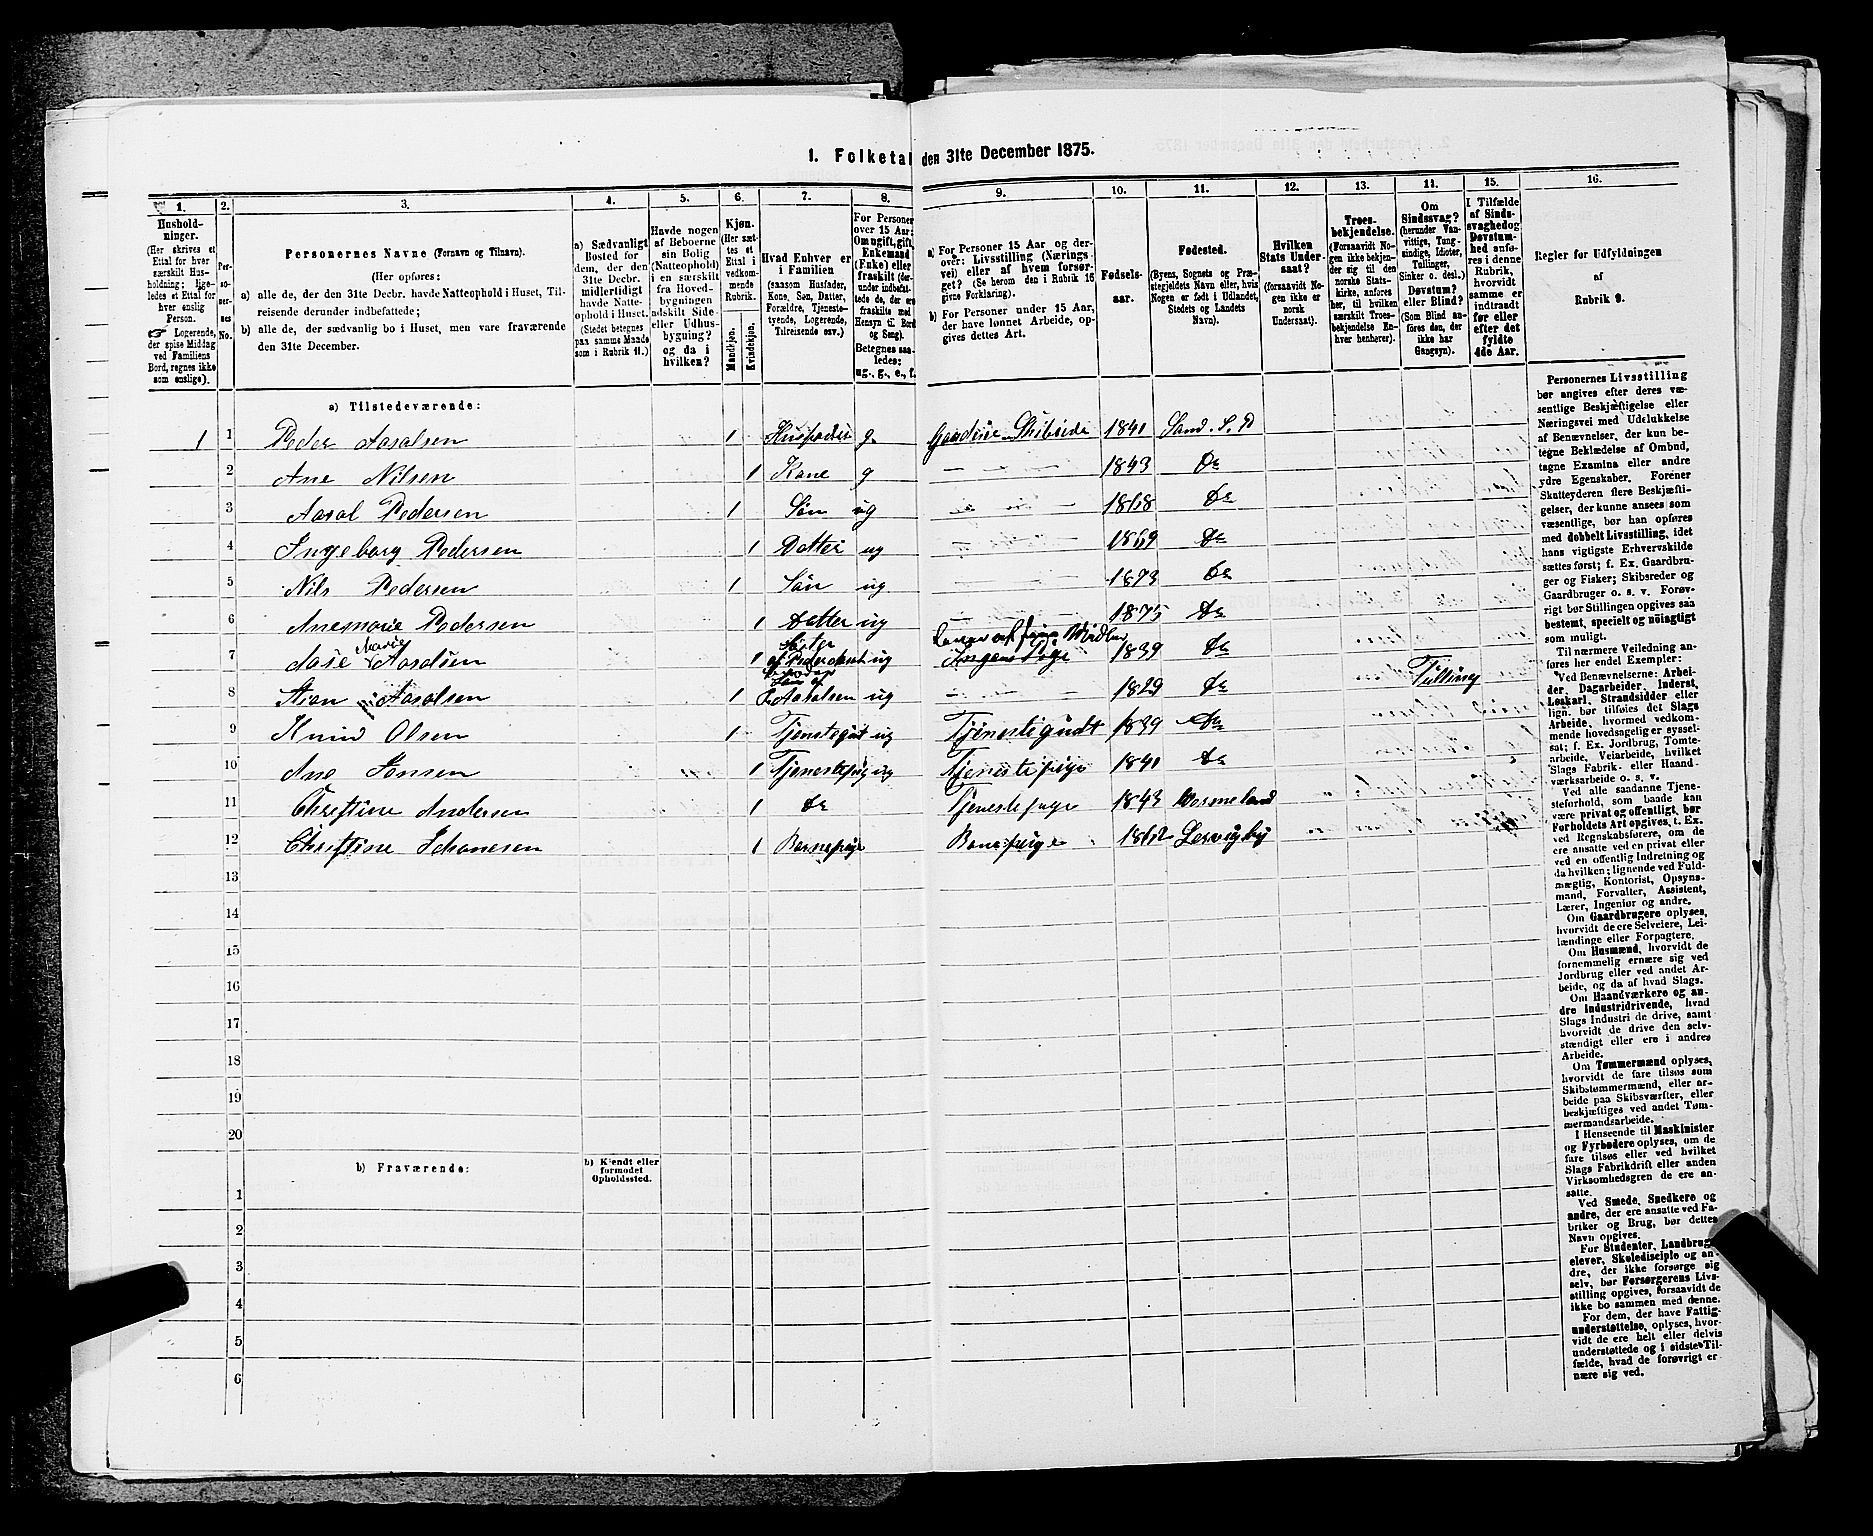 1. Folketal den 31te December 1875.
1. 2. 3. 4. 5. 6. 7. 8. 9. 10. 11. 12. 13. 14. 15. 16.
Hushold-
ninger.
(Her skrives et
Ettal for hver
særskilt Hus-
holdning; lige-
ledes et Ettal for
hver enslig
Person.
☞ Logerende,
der spise Middag
ved Familiens
Bord, regnes ikke
som enslige).
Per-
so-
ner-
nes
No.
Personernes Navne (Fornavn og Tilnavn).
(Her opføres:
a) alle de, der den 31te Decbr. havde Natteophold i Huset, Til-
reisende derunder indbefattede;
b) alle de, der sædvanlig bo i Huset, men vare fraværende
den 31te December.
a) Sædvanligt
Bosted for
dem, der den
31te Decbr.
midlertidigt
havde Natte-
ophold i Huset.
(Stedet betegnes
paa samme Maade
som i Rubrik 11.)
Havde nogen
af Beboerne
sin Bolig
(Natteophold)
i en særskilt
fra Hoved-
bygningen
adskilt Side-
eller Udhus-
bygning?
og da i
hvilken?
Kjøn.
(Her sæt-
tes et
Ettal i
vedkom-
mende
Rubrik.
Mandkjøn.
Kvindekjøn.
Hvad Enhver er
i Familien
(saasom Husfader,
Kone, Søn, Datter,
Forældre, Tjeneste-
tyende, Logerende,
Tilreisende osv.)
For Personer
over 15 Aar:
Om ugift, gift,
Enkemand
(Enke) eller
fraskilt (der-
under indbefat-
tede de, der ere
fraskilte med
Hensyn til Bord
og Seng).
Betegnes saa-
ledes:
ug., g., e., f.
a) For Personer 15 Aar og der-
over: Livsstilling (Nærings-
vei) eller af hvem forsør-
get? (Se herom den i Rubrik 16
givne Forklaring).
b) For Personer under 15 Aar,
der have lønnet Arbeide, op-
gives dettes Art.
Fødsels-
aar.
Fødested.
(Byens, Sognets og Præ-
stegjeldets Navn, eller, hvis
Nogen er født i Udlandet,
Stedets og Landets
Navn).
Hvilken
Stats Under-
saat?
(foraavidt No-
gen ikke er
norsk
Undersaat).
Troes-
bekjendelse.
(Forsaavidt No-
gen ikke bekjen-
der sig til den
norske Stats-
kirke, anføres
her, til hvilken
særskilt Troes-
bekjendelse En-
hver henhører).
Om
Sindssvag?
(herunder Van-
vittige, Tung-
sindige, Idioter,
Tullinger,
Sinker o. desl.)
Døvstum?
eller Blind?
(Som Blind an-
føres den, der
ikke har
Gangsyn).
I Tilfælde
af Sinds-
svaghed og
Døvstum-
hed anfø-
res i denne
Rubrik,
hvorvidt
samme er
indtraadt
før eller
efter det
fyldte
4de Aar.
Regler for Udfyldningen
af
Rubrik 9.
a) Tilstedeværende:
1 1 Peder Aasolsen 1 Husfader g. Gaardeier Skibsrede 1841 Sand. S. P
2 Ane Nilsen 1 Kone g 1843 Do
3 Aasol Pedersen 1 Søn ug 1868 Do
4 Ingeborg Pedersen 1 Datter ug 1869 Do
5 Nils Pedersen 1 Søn ug 1873 Do
6 Anemarie Pedersen 1 Datter ug 1875 Do
7 Aase Marie Aasolsen 1 Søster af ug Lever af sine Midler 1839 Do
8 Aasolsen 1 Aasolsen ug 1829 Do Tulling
9 Knud Olsen 1 Tjenstegut ug Tjenestegudt 1839 Do
10 Ane Jensen 1 Tjenestepig ug Tjenestepige 1841 Do
11 Christine Andersen 1 Do Tjenestepige 1843 Vormeland
12 Christine Johanesen 1 Barnepige Barnepige 1862 Lervigby
13
14
15
16
17
18
19
20
b) Fraværende:
b) Kjendt eller
formodet
Opholdssted.
1
2
3
4
5
6
Personernes Livsstilling
bør angives efter deres væ-
sentlige Beskjæftigelse eller
Næringsvei med Udelukkelse
af Benævnelser, der kun be-
tegne Beklædelse af Ombud,
tagne Examina eller andre
ydre Egenskaber. Forener
Skatteyderen flere Beskjæfti-
gelser, der kunne ansees som
væsentlige, bør han opføres
med dobbelt Livsstilling, idet
hans vigtigste Erhvervskilde
sættes først; f. Ex. Gaardbru-
ger og Fisker; Skibsreder og
Gaardbruger o. s. v. Forøv-
rigt bør Stillingen opgives saa
bestemt, specielt og nøiagtigt
som muligt.
Til nærmere Veiledning an-
føres her endel Exempler:
Ved Benævnelserne: Arbei-
der, Dagarbeider, Inderst,
Løskarl, Strandsidder eller
lign. bør tilføies det Slags
Arbeide, hvormed vedkom-
mende hovedsagelig er syssel-
sat; f. Ex. Jordbrug, Tomte-
arbeide, Veiarbeide, hvilket
Slags Fabrik- eller Haand-
værksarbeide o. s. v.
Ved alle saadanne Tjene-
steforhold, som baade kan
være privat og offentligt, bør
Forholdets Art opgives, f. Ex.
ved Regnskabsførere, om de
ere ansatte ved en privat eller
ved en offentlig Indretning og
da hvilken; lignende ved Fuld-
mægtig, Kontorist, Opsyns-
mand, Forvalter, Assistent,
Lærer, Ingeniør og andre.
Om Gaardbrugere oplyses,
hvorvidt de ere Selveiere, Lei-
lændinge eller Forpagtere.
Om Husmænd, hvorvidt de
fornemmelig ernære sig ved
Jordbrug eller ved andet Ar-
beide, og da af hvad Slags.
Om Haandværkere og an-
dre Industridrivende, hvad
Slags Industri de drive, samt
hvorvidt de drive den selv-
stændigt eller ere i andres
Arbeide.
Om Tømmermænd oplyses,
hvorvidt de fare tilsøs som
Skibstømmermænd, eller ar-
beide paa Skibsværfter, eller
beskjæftiges ved andet Tøm-
mermandsarbeide.
I Henseende til Maskinister
og Fyrbødere oplyses, om de
fare tilsøs eller ved hvilket
Slags Fabrikdrift eller anden
Virksomhedsgren de ere an-
satte.
Ved Smede, Snedkere og
andre, der ere ansatte ved Fa-
briker og Brug, bør dettes
Navn opgives.
For Studenter, Landbrugs-
elever, Skoledisciple og an-
dre, der ikke forsørge sig
selv, bør Forsørgerens Livs-
stilling opgives, forsaavidt de
ikke bo sammen med denne.
For dem, der have Fattig-
understøttelse, oplyses, hvor-
vidt de ere helt eller delvis
understøttede og i sidste Til-
fælde, hvad de forøvrigt er-
nære sig ved.